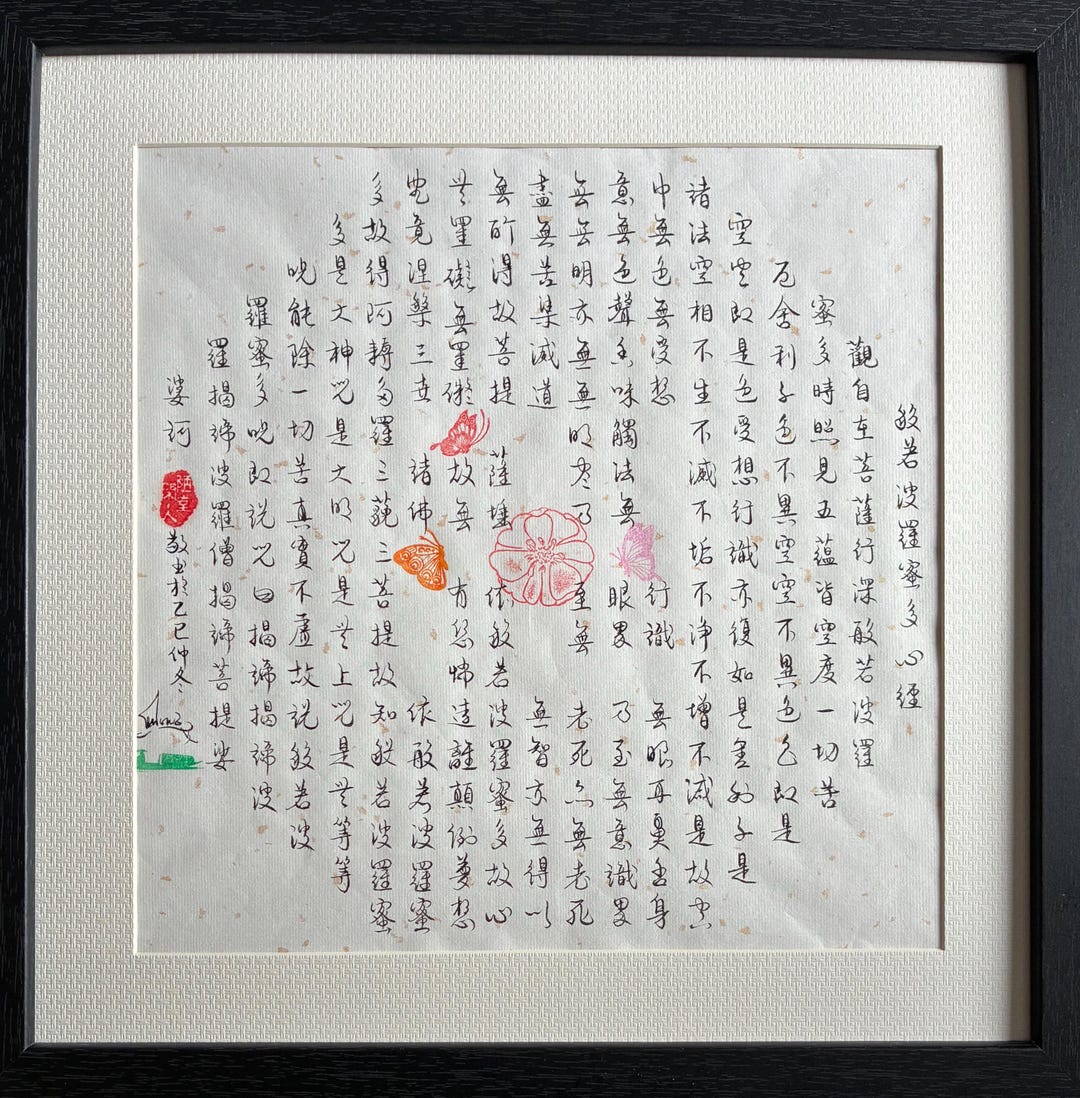 般若波羅蜜多心經
觀自在菩薩行深般若波羅
蜜多時照見五蘊皆空度一切苦
厄舍利子色不異空空不異色色即是
空空即是色受想行識亦復如是舍利子是
諸法空相不生不滅不垢不淨不增不減是故空
中無色無受想行識無眼耳鼻舌身
意無色聲香味觸法無眼界乃至無意識界
無無明亦無無明盡乃至無老死亦無老死
盡無苦集滅道無智亦無得以
無所得故菩提薩埵依般若波羅蜜多故心
無罣礙無罣礙故無有恐怖遠離顛倒夢想
究竟涅槃三世諸佛依般若波羅蜜
多故得阿耨多羅三藐三菩提故知般若波羅蜜
多是大神咒是大明咒是無上咒是無等等
咒能除一切苦真實不虛故說般若波
羅蜜多咒即說咒曰揭諦揭諦波
羅揭諦波羅僧揭諦菩提娑
婆訶
敬書於乙巳仲冬